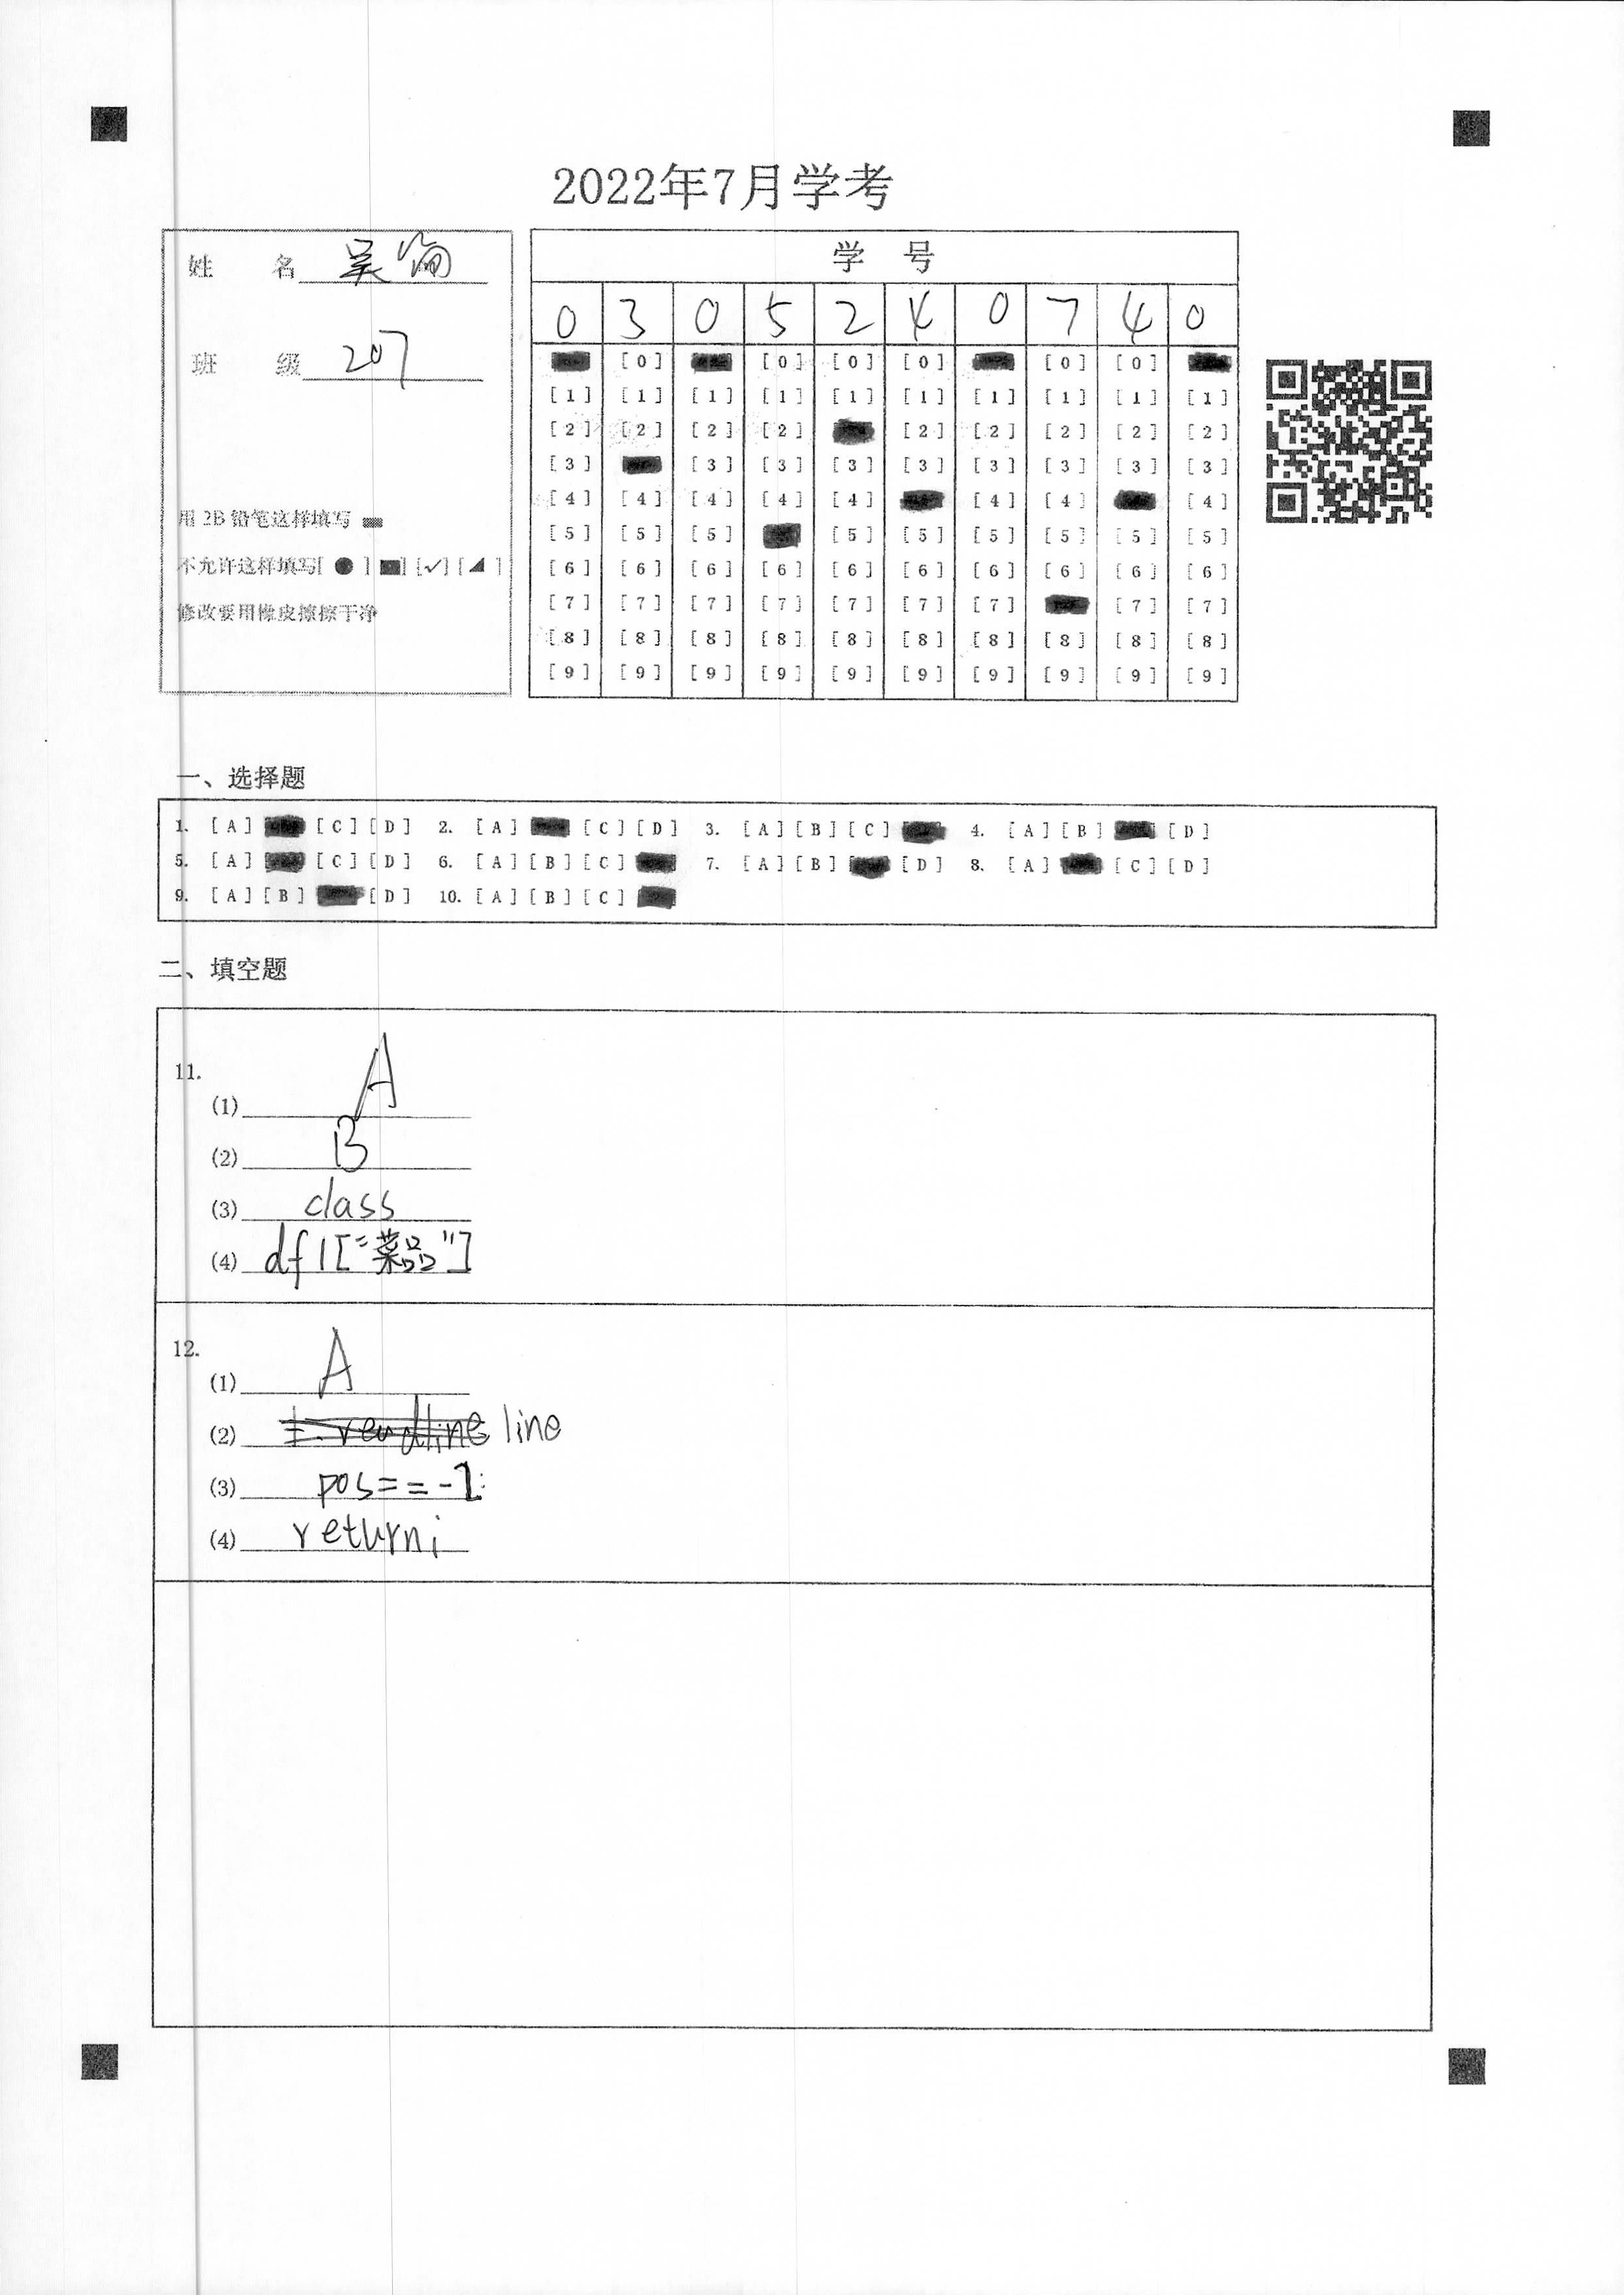 2022年7月学考
姓 名 吴
班 级 207
用 2B 铅笔这样填写
不允许这样填写[ ● ] [■] [✓] [◢ ]
修改要用橡皮擦擦干净
学 号
0 3 0 5 2 4 0 7 4 0
[0] [0] [0] [0] [0] [0]
[1] [1] [1] [1] [1] [1] [1] [1] [1] [1]
[2] [2] [2] [2] [2] [2] [2] [2] [2]
[3] [3] [3] [3] [3] [3] [3] [3] [3]
[4] [4] [4] [4] [4] [4] [4] [4]
[5] [5] [5] [5] [5] [5] [5] [5] [5]
[6] [6] [6] [6] [6] [6] [6] [6] [6] [6]
[7] [7] [7] [7] [7] [7] [7] [7] [7]
[8] [8] [8] [8] [8] [8] [8] [8] [8] [8]
[9] [9] [9] [9] [9] [9] [9] [9] [9] [9]
一、选择题
1. [A] [C] [D] 2. [A] [C] [D] 3. [A] [B] [C] 4. [A] [B] [D]
5. [A] [C] [D] 6. [A] [B] [C] 7. [A] [B] [D] 8. [A] [C] [D]
9. [A] [B] [D] 10. [A] [B] [C]
二、填空题
11.
(1) A
(2) B
(3) class
(4) df1["菜品"]
12.
(1) A
(2) line
(3) pos==-1:
(4) return i